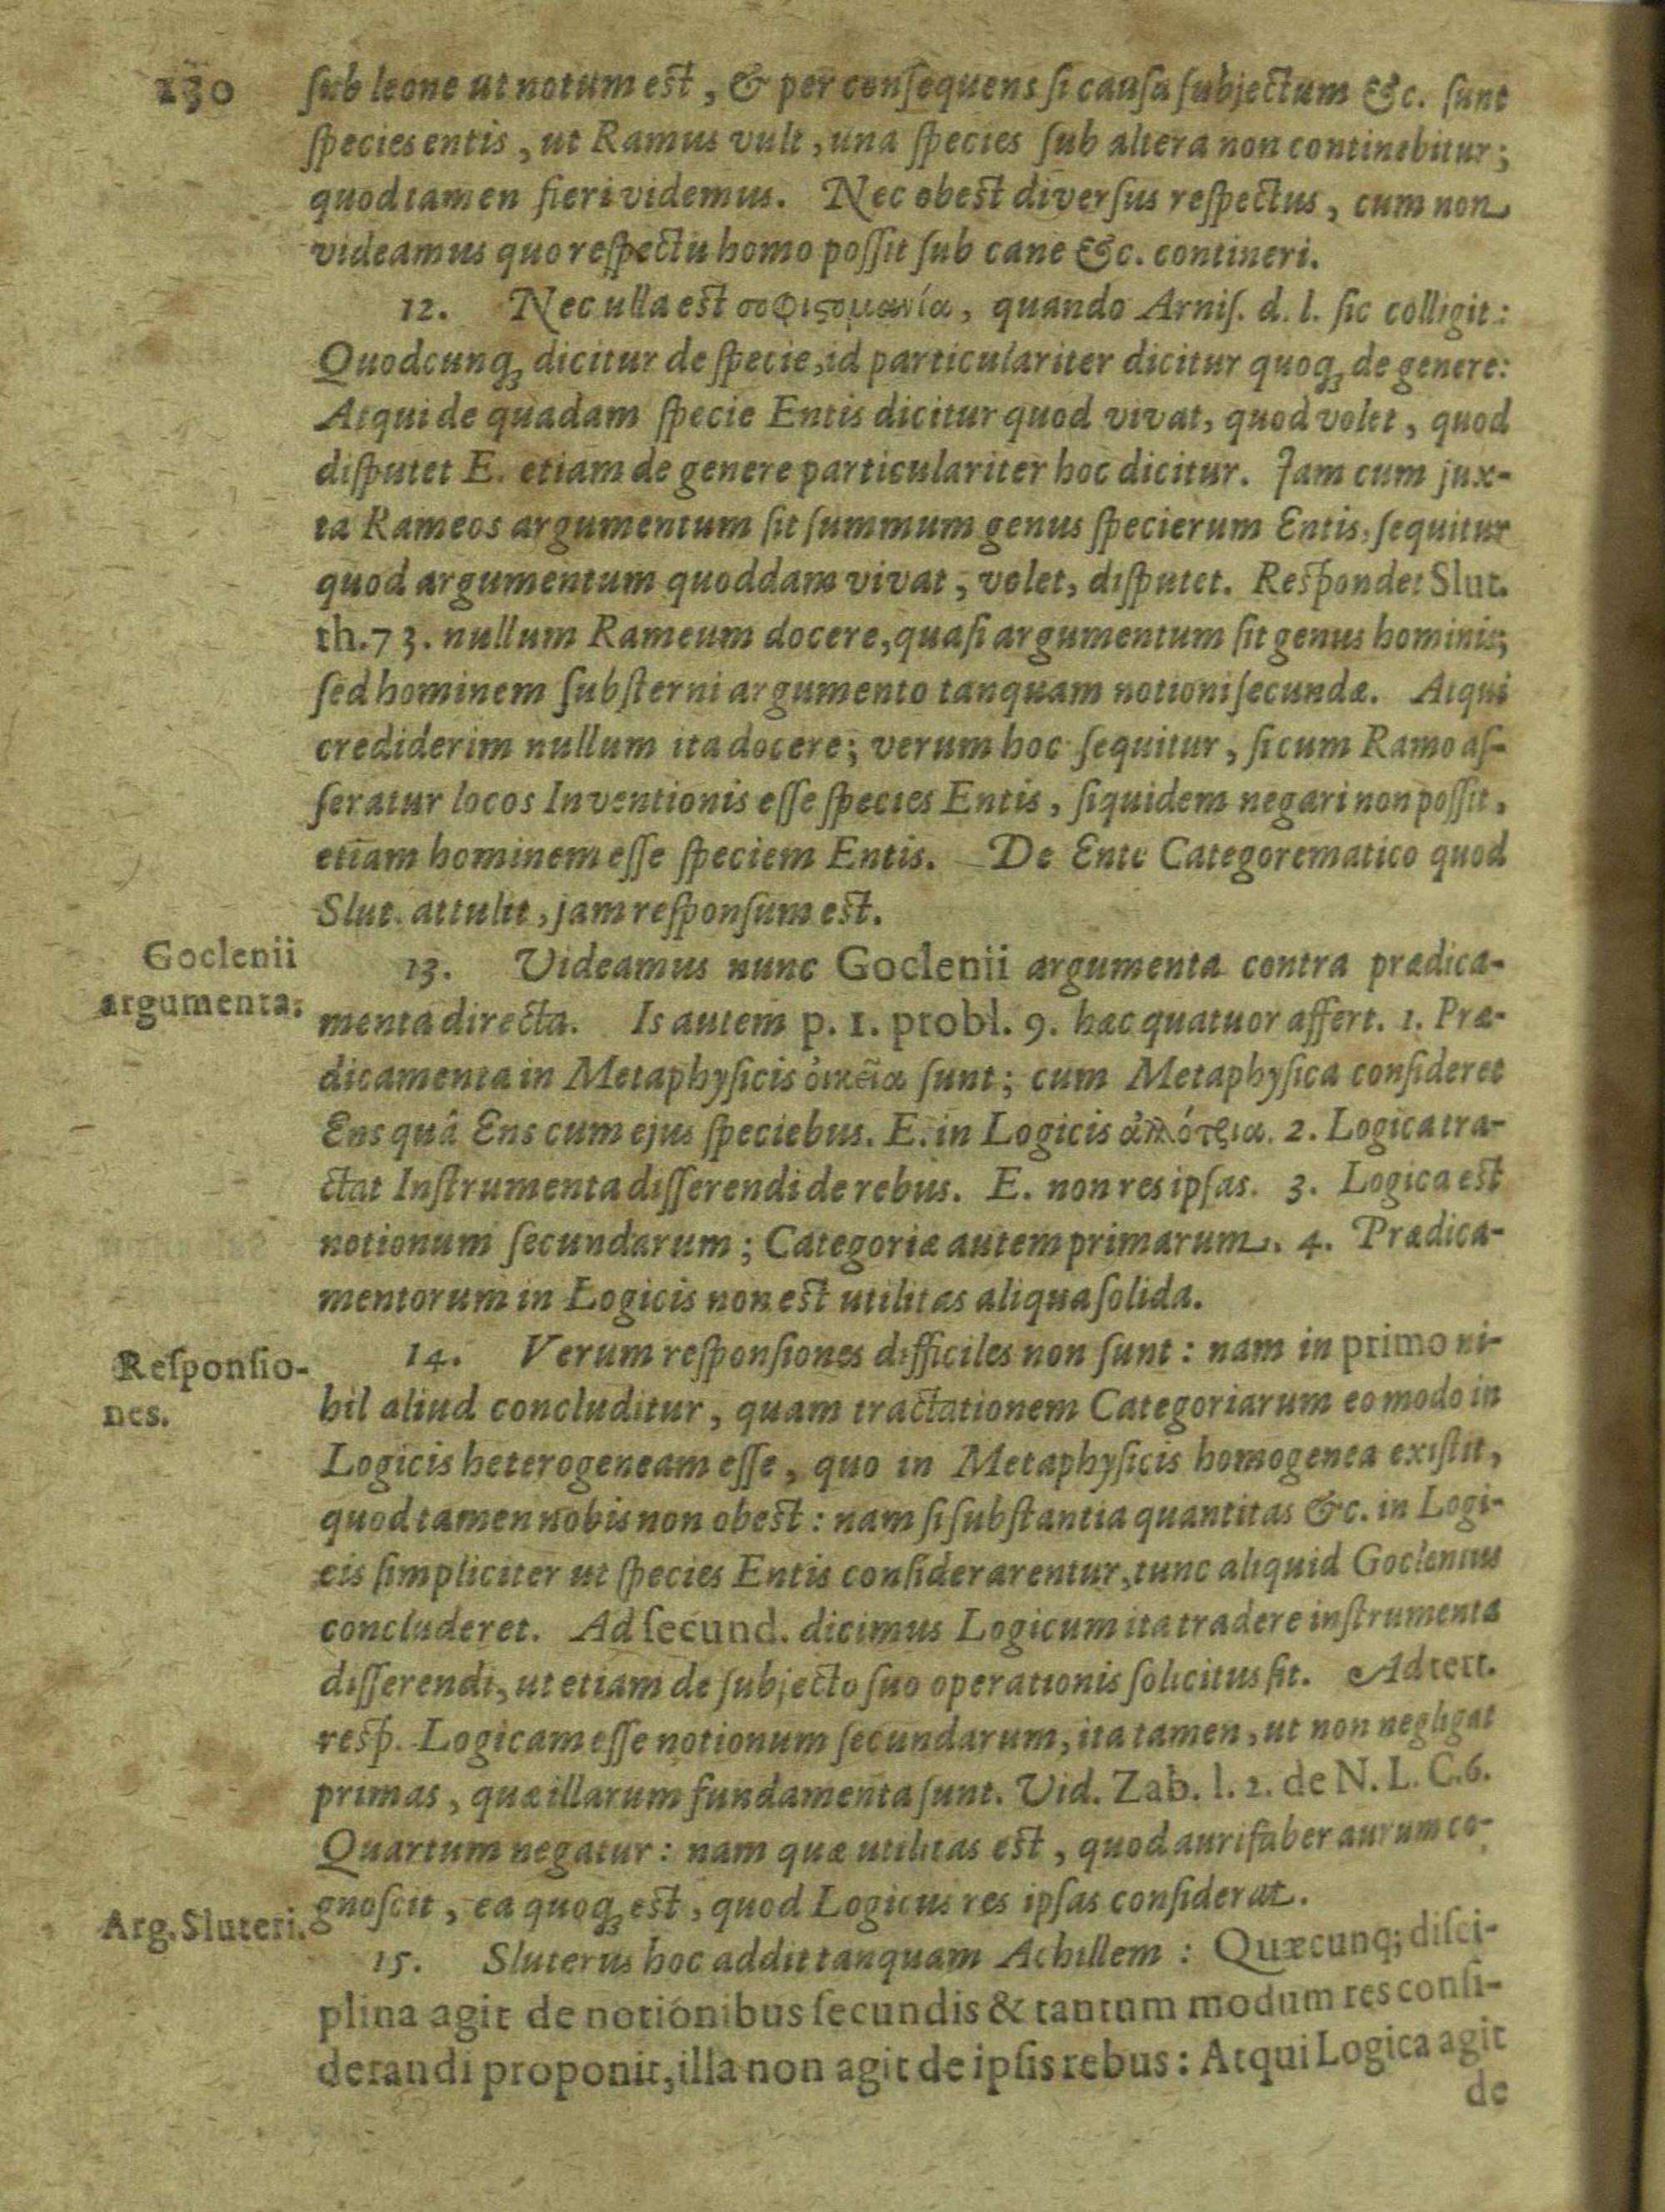 130
ſub leone ut notum eſt, & per conſequens ſi cauſa ſubjectum &c. ſunt
ſpecies entis, ut Ramus vult, una ſpecies ſub altera non continebitur;
quod tamen fieri videmus. Nec obeſt diverſus reſpectus, cum non
videamus quo reſpectu homo poſſit ſub cane &c. contineri.
12. Nec ulla eſt σοφιϛομανία, quando Arniſ. d. l. ſic colligit:
Quodcunq; dicitur de ſpecie, id particulariter dicitur quoq; de genere:
Atqui de quadam ſpecie Entis dicitur quod vivat, quod volet, quod
diſputet E. etiam de genere particulariter hoc dicitur. Jam cum jux-
ta Rameos argumentum ſit ſummum genus ſpecierum Entis, ſequitur
quod argumentum quoddam vivat, volet, diſputet. Reſpondet Slut.
th. 73. nullum Rameum docere, quaſi argumentum ſit genus hominis;
ſed hominem ſubſterni argumento tanquam notioni ſecundæ. Atqui
crediderim nullum ita docere; verum hoc ſequitur, ſi cum Ramo aſ-
ſeratur locos Inventionis eſſe ſpecies Entis, ſiquidem negari non poſſit,
etiam hominem eſſe ſpeciem Entis. De Ente Categorematico quod
Slut. attulit, jam reſponſum eſt.
Goclenii
argumenta.
13. Videamus nunc Goclenii argumenta contra prædica-
menta directa. Is autem p. 1. probl. 9. hæc quatuor affert. 1. Præ-
dicamenta in Metaphyſicis ὀικεῖα ſunt; cum Metaphyſica conſideret
Ens quâ Ens cum ejus ſpeciebus. E. in Logicis ἀλλότρια. 2. Logica tra-
ctat Inſtrumenta diſſerendi de rebus. E. non res ipſas. 3. Logica eſt
notionum ſecundarum; Categoriæ autem primarum. 4. Prædica-
mentorum in Logicis non eſt utilitas aliqua ſolida.
Reſponſio-
nes.
14. Verum reſponſiones difficiles non ſunt: nam in primo ni-
hil aliud concluditur, quam tractationem Categoriarum eo modo in
Logicis heterogeneam eſſe, quo in Metaphyſicis homogenea exiſtit,
quod tamen nobis non obeſt: nam ſi ſubſtantia quantitas &c. in Logi-
cis ſimpliciter ut ſpecies Entis conſiderarentur, tunc aliquid Goclenius
concluderet. Ad ſecund. dicimus Logicum ita tradere inſtrumenta
diſſerendi, ut etiam de ſubjecto ſuo operationis ſolicitus ſit. Ad tert.
reſp. Logicam eſſe notionum ſecundarum, ita tamen, ut non negligat
primas, quæ illarum fundamenta ſunt. Vid. Zab. l. 2. de N. L. C. 6.
Quartum negatur: nam quæ utilitas eſt, quod aurifaber aurum co-
gnoſcit, ea quoq; eſt, quod Logicus res ipſas conſiderat.
Arg. Sluteri.
15. Sluterus hoc addit tanquam Achillem: Quæcunq; diſci-
plina agit de notionibus ſecundis & tantum modum res conſi-
derandi proponit, illa non agit de ipſis rebus: Atqui Logica agit
de